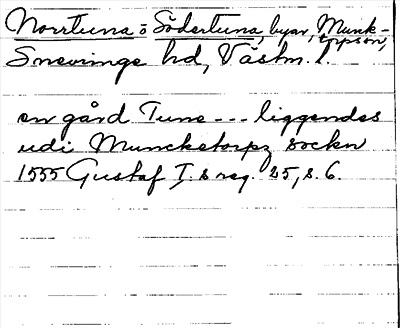 Norrtuna o Södertuna, byar, Munk-
torpson,
Snevringe hd, Västm. l.
en gård Tune --- liggendes
udi Muncketorpz sockn
1555 Gustaf I:s reg. 25, s. 6.